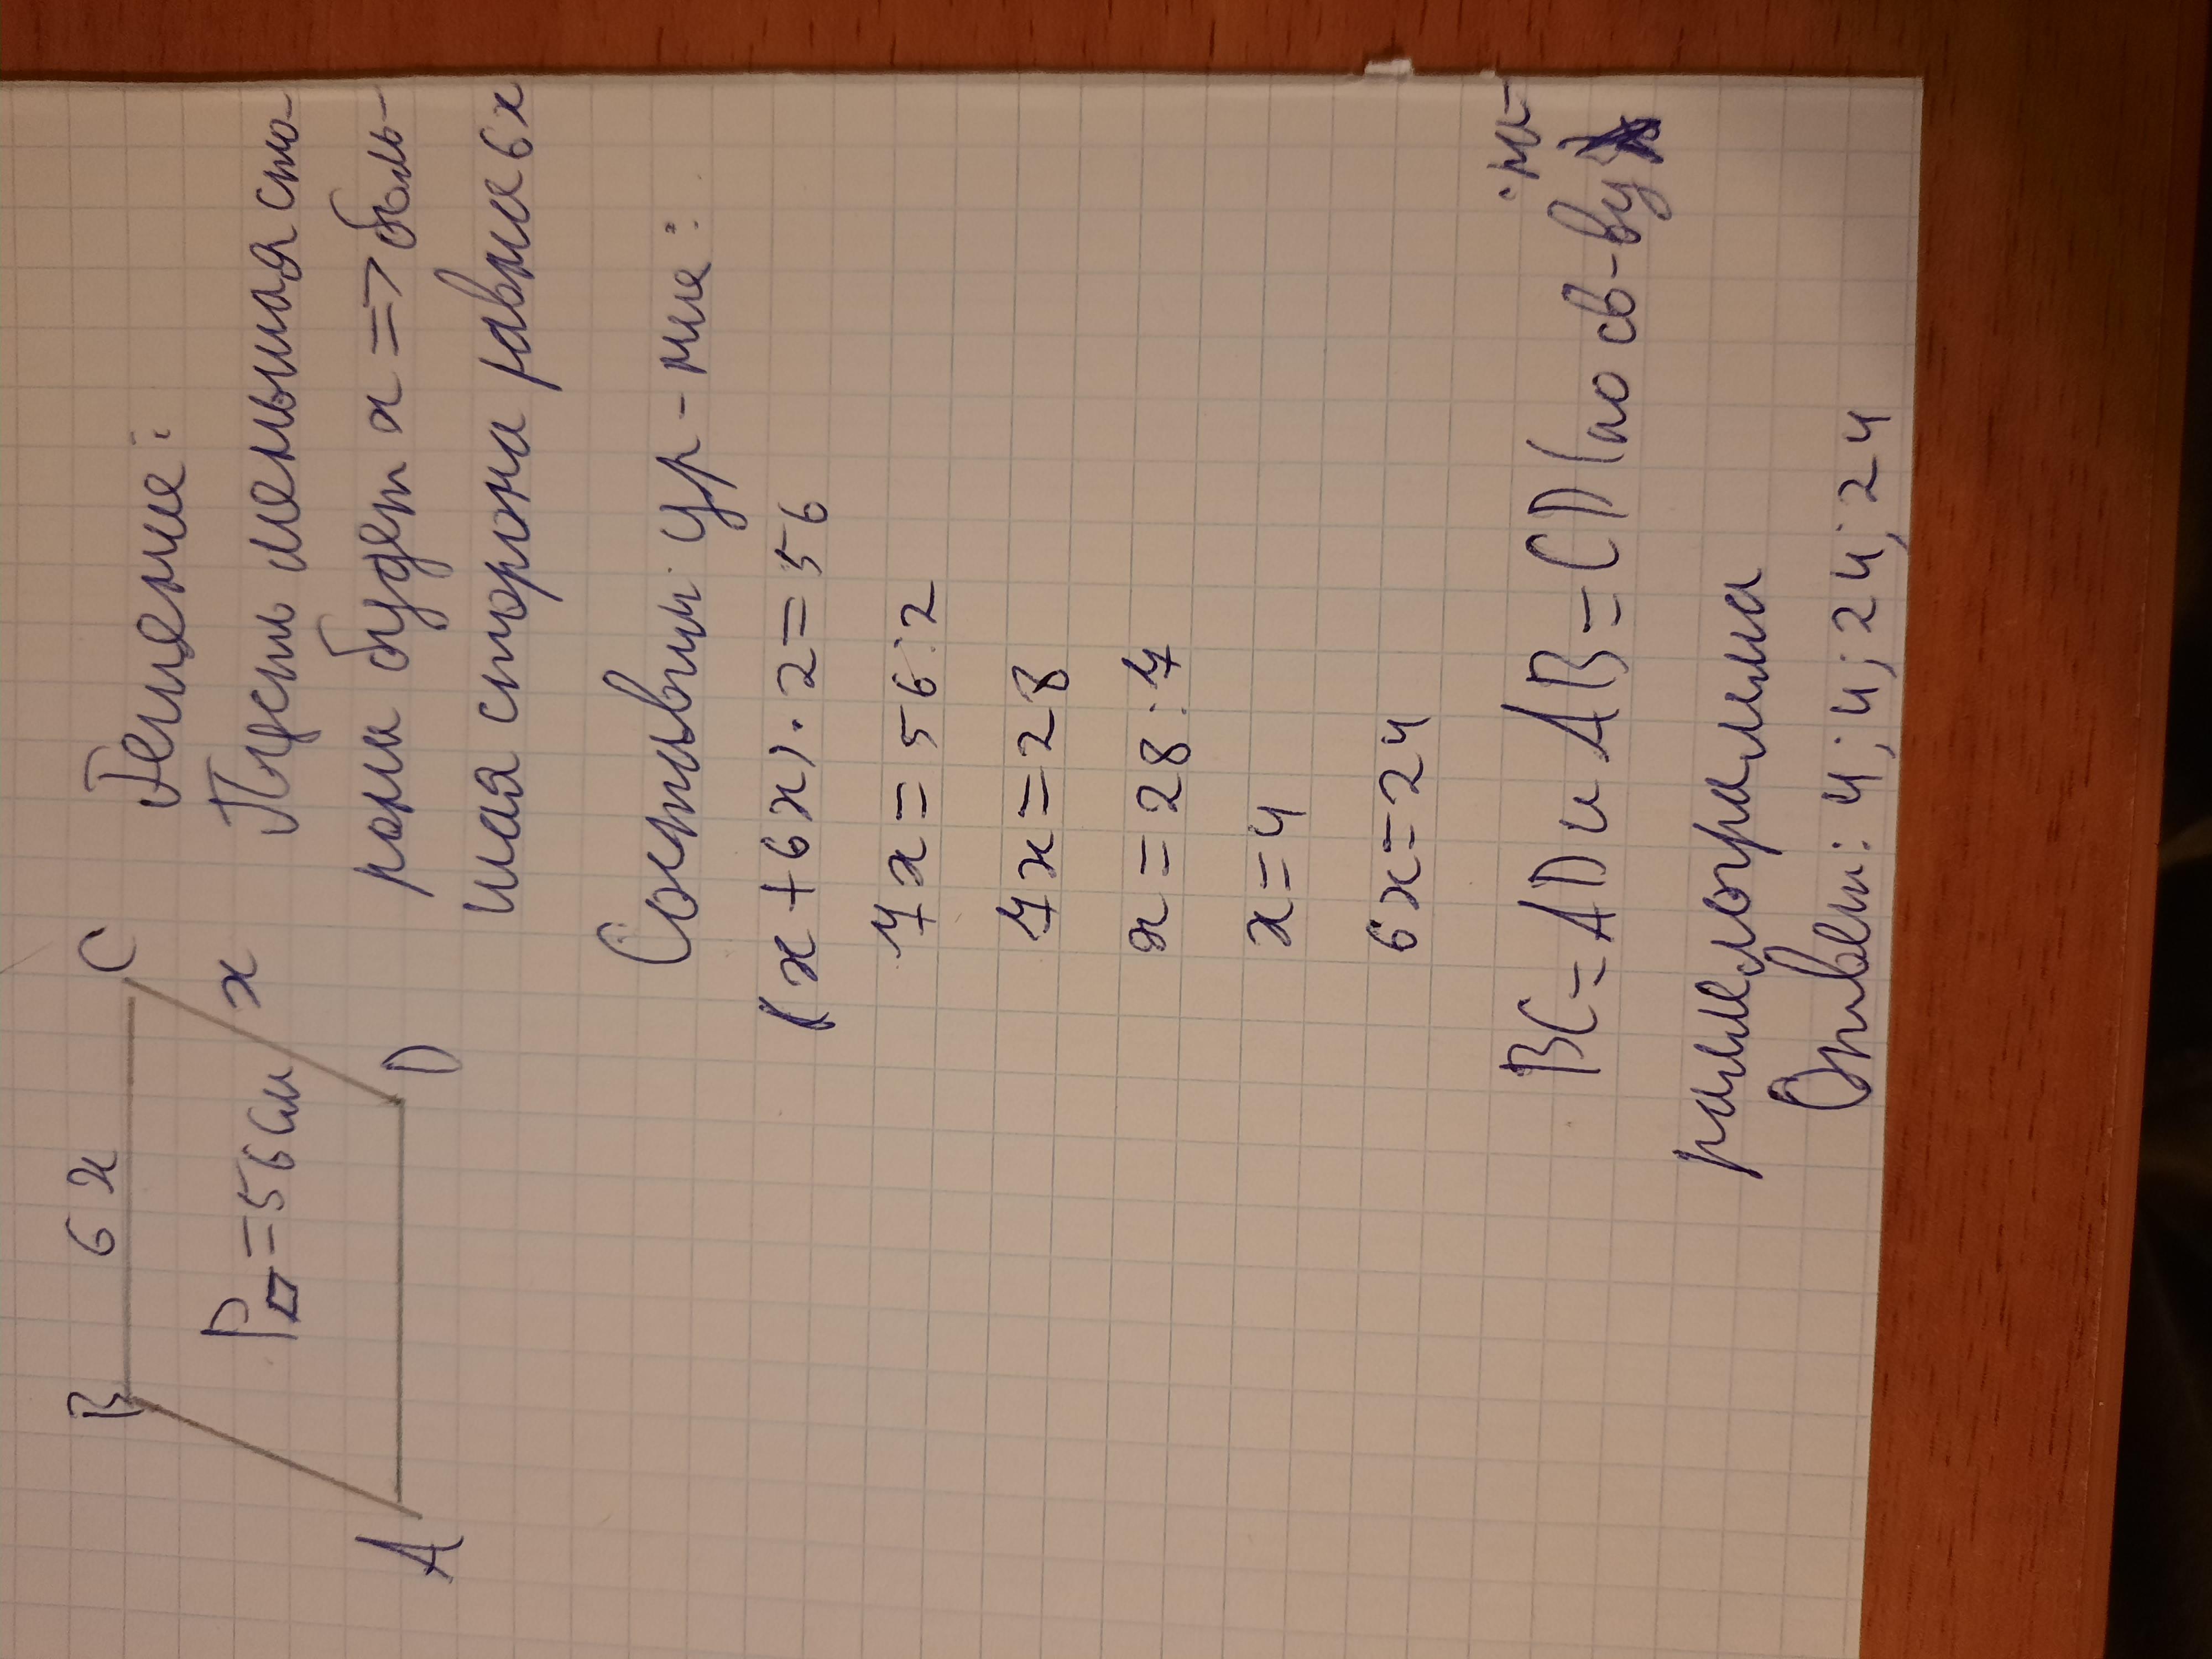 B 6x C
P▱=56см x
A D
Решение:
Пусть меньшая сто-
рона будет x => боль-
шая сторона равна 6x
Составим ур-ние:
(x+6x)·2=56
7x=56:2
7x=28
x=28:7
x=4
6x=24
BC=AD и AB=CD (по св-ву па-
раллелограмма
Ответ: 4; 4; 24; 24